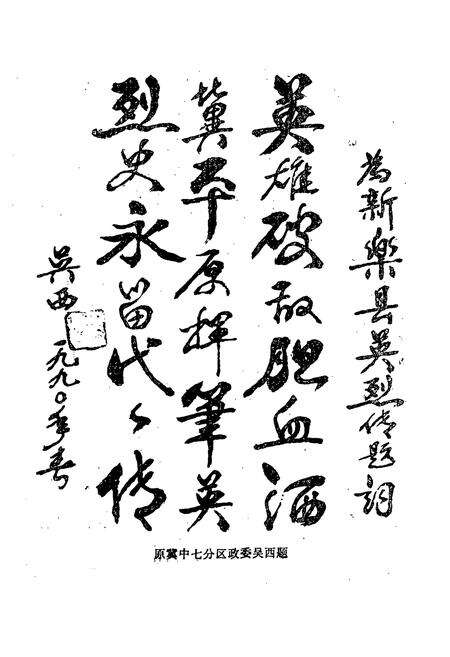 为新樂县英烈传题词
英雄破敌胆血洒
冀平原挥筆英
烈史永留代々传
吴西
一九九〇年春
原冀中七分区政委吴西题